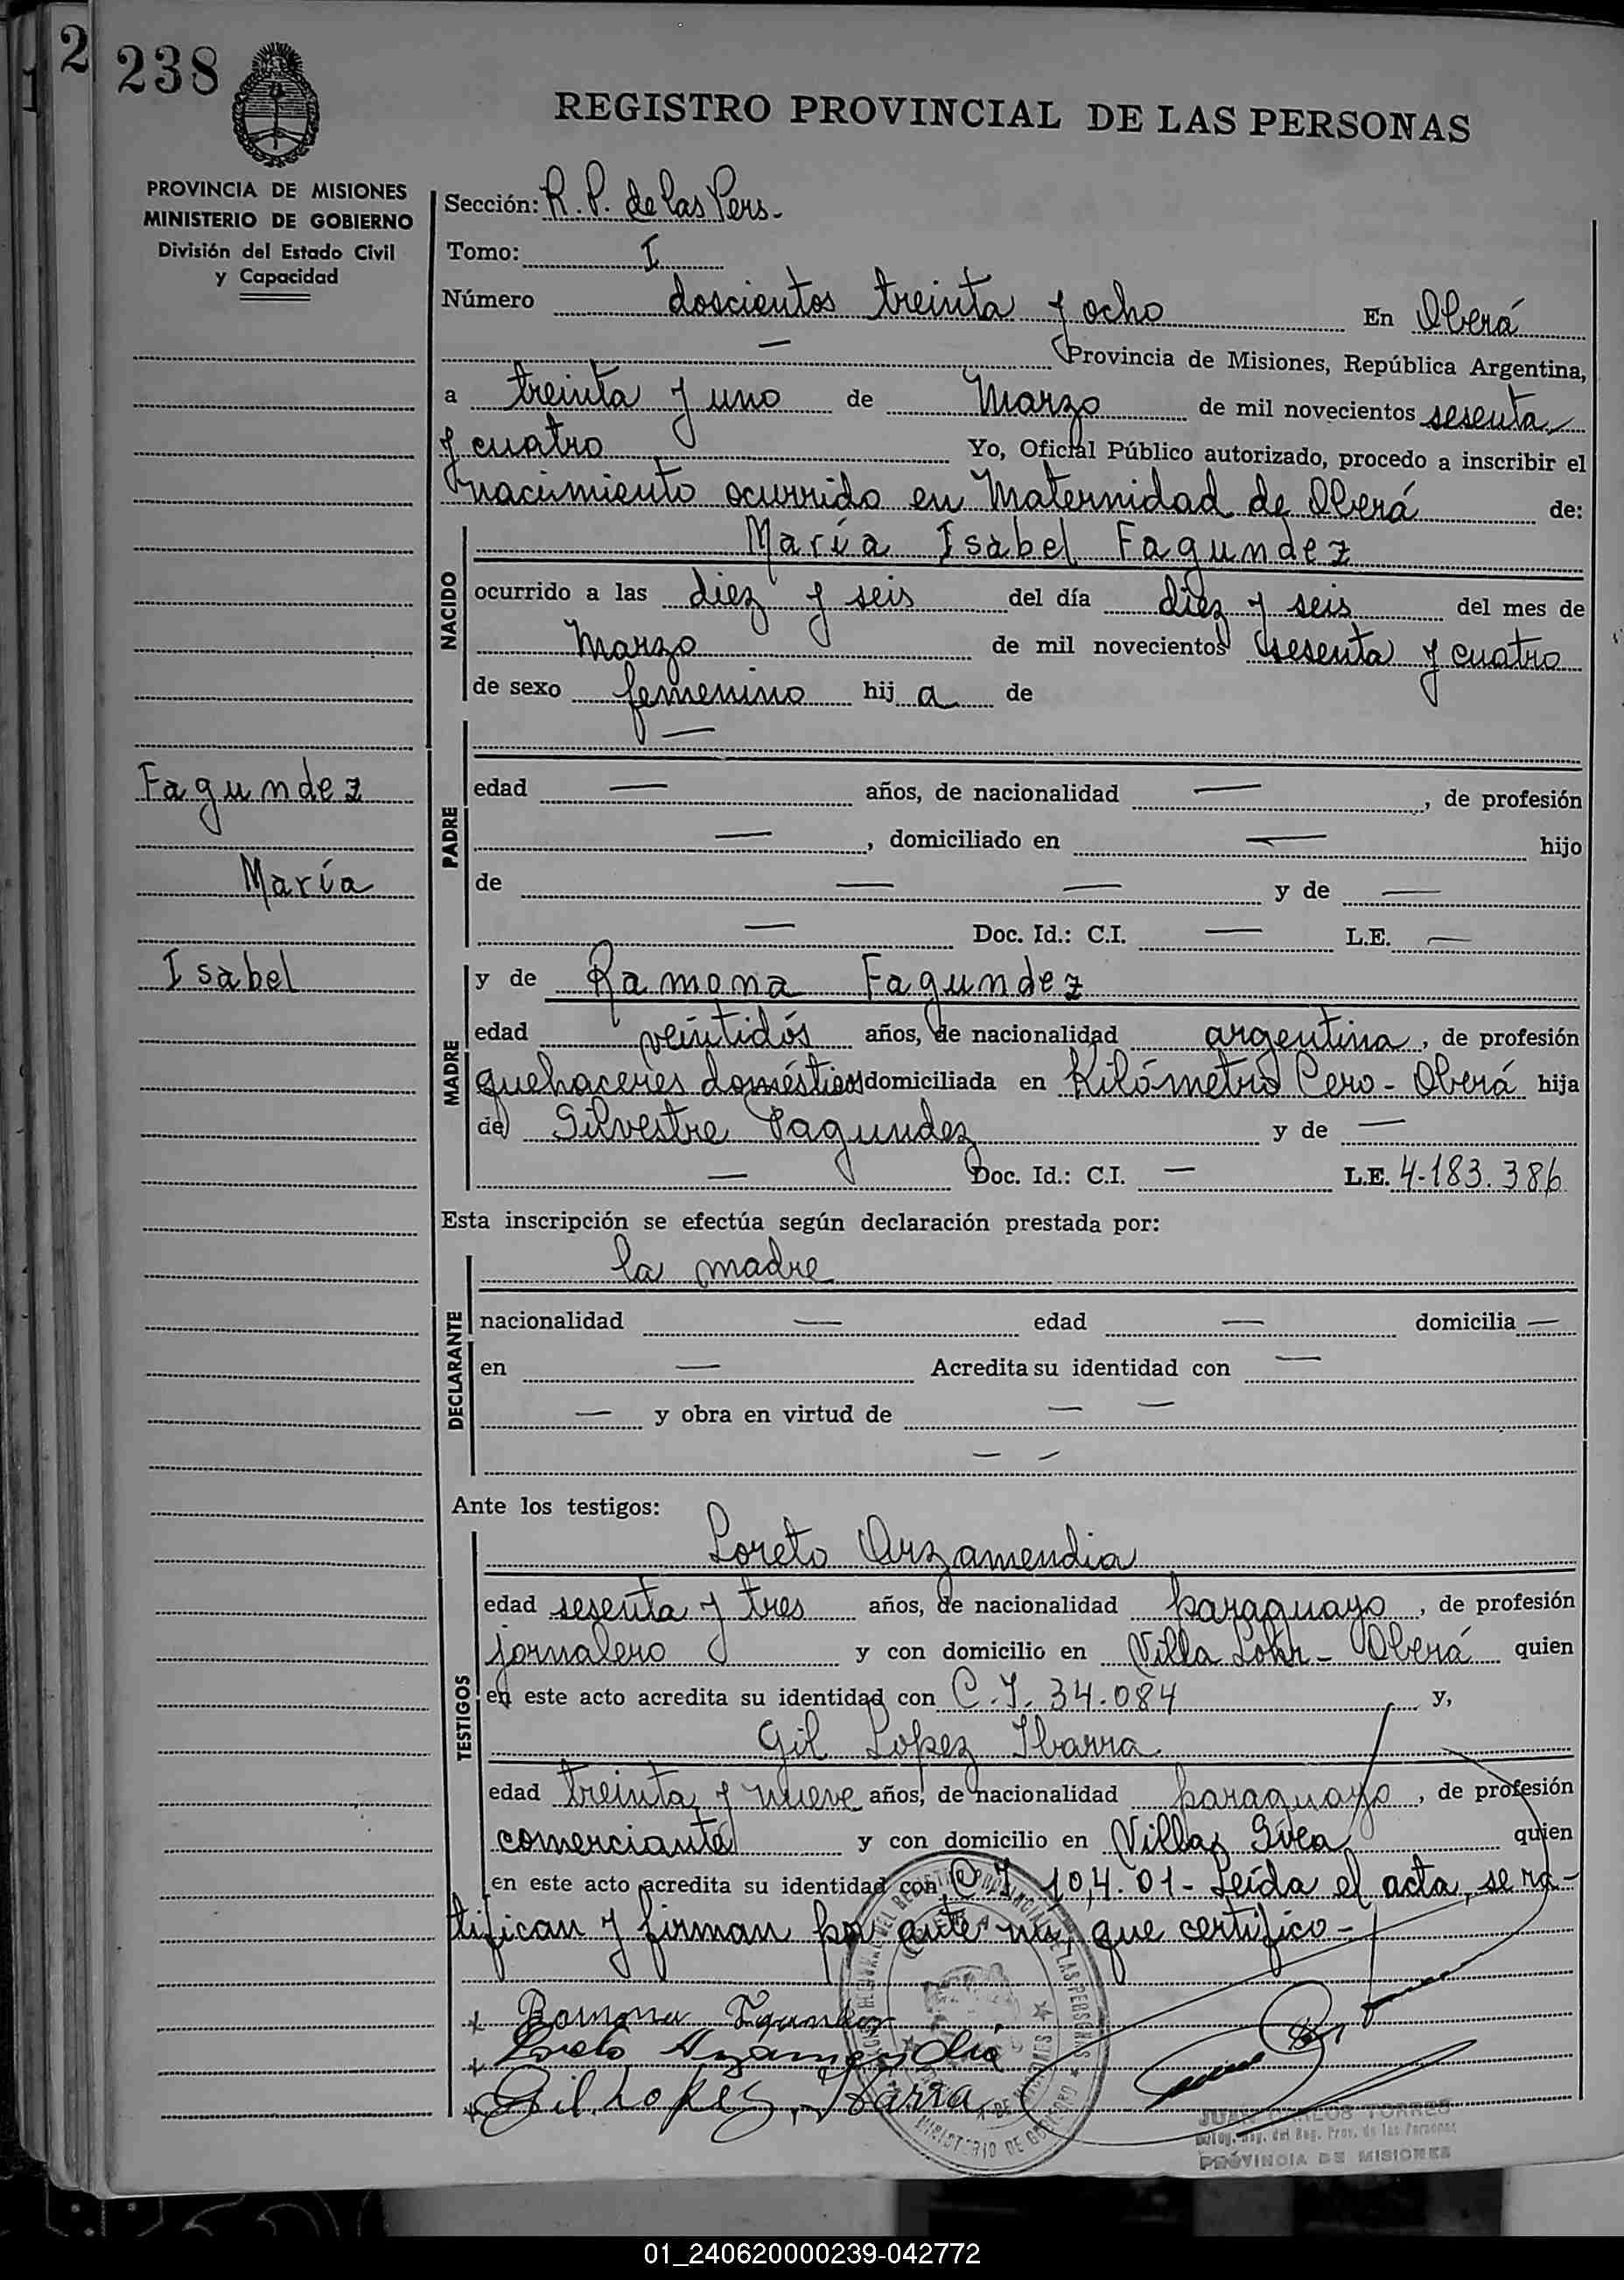 2
238
REGISTRO PROVINCIAL DE LAS PERSONAS
PROVINCIA DE MISIONES
MINISTERIO DE GOBIERNO
División del Estado Civil
y Capacidad
Sección: R.P. de las Pers.
Tomo: I
Número doscientos treinta y ocho En Oberá
— Provincia de Misiones, República Argentina,
a treinta y uno de Marzo de mil novecientos sesenta
y cuatro Yo, Oficial Público autorizado, procedo a inscribir el
nacimiento ocurrido en Maternidad de Oberá de:
NACIDO
María Isabel Fagundez
ocurrido a las diez y seis del día diez y seis del mes de
Marzo de mil novecientos sesenta y cuatro
de sexo femenino hij a de
—
Fagundez
María
Isabel
PADRE
edad — años, de nacionalidad — , de profesión
— , domiciliado en — hijo
de — — y de —
— Doc. Id.: C.I. — L.E. —
MADRE
y de Ramona Fagundez
edad veintidós años, de nacionalidad argentina, de profesión
quehaceres domésticos domiciliada en Kilómetro Cero - Oberá hija
de Silvestre Fagundez y de —
— Doc. Id.: C.I. — L.E. 4.183.386
Esta inscripción se efectúa según declaración prestada por:
DECLARANTE
la madre
nacionalidad — edad — domicilia —
en — Acredita su identidad con —
— y obra en virtud de — —
— —
Ante los testigos:
TESTIGOS
Loreto Arzamendia
edad sesenta y tres años, de nacionalidad paraguayo, de profesión
jornalero y con domicilio en Villa Lohr - Oberá quien
en este acto acredita su identidad con C.I. 34.084 y,
Gil Lopez Ibarra
edad treinta y nueve años, de nacionalidad paraguayo, de profesión
comerciante y con domicilio en Villa quien
en este acto acredita su identidad con C.I. 10,4.01 - Leída el acta, se ra-
tifican y firman por ante mí, que certifico -
Ramona
Loreto Arzamendia
Gil Lopez Ibarra
JUAN CARLOS TORRES
del Reg. Prov. de las Personas
PROVINCIA DE MISIONES
MINISTERIO DE GOBIERNO
01_240620000239-042772